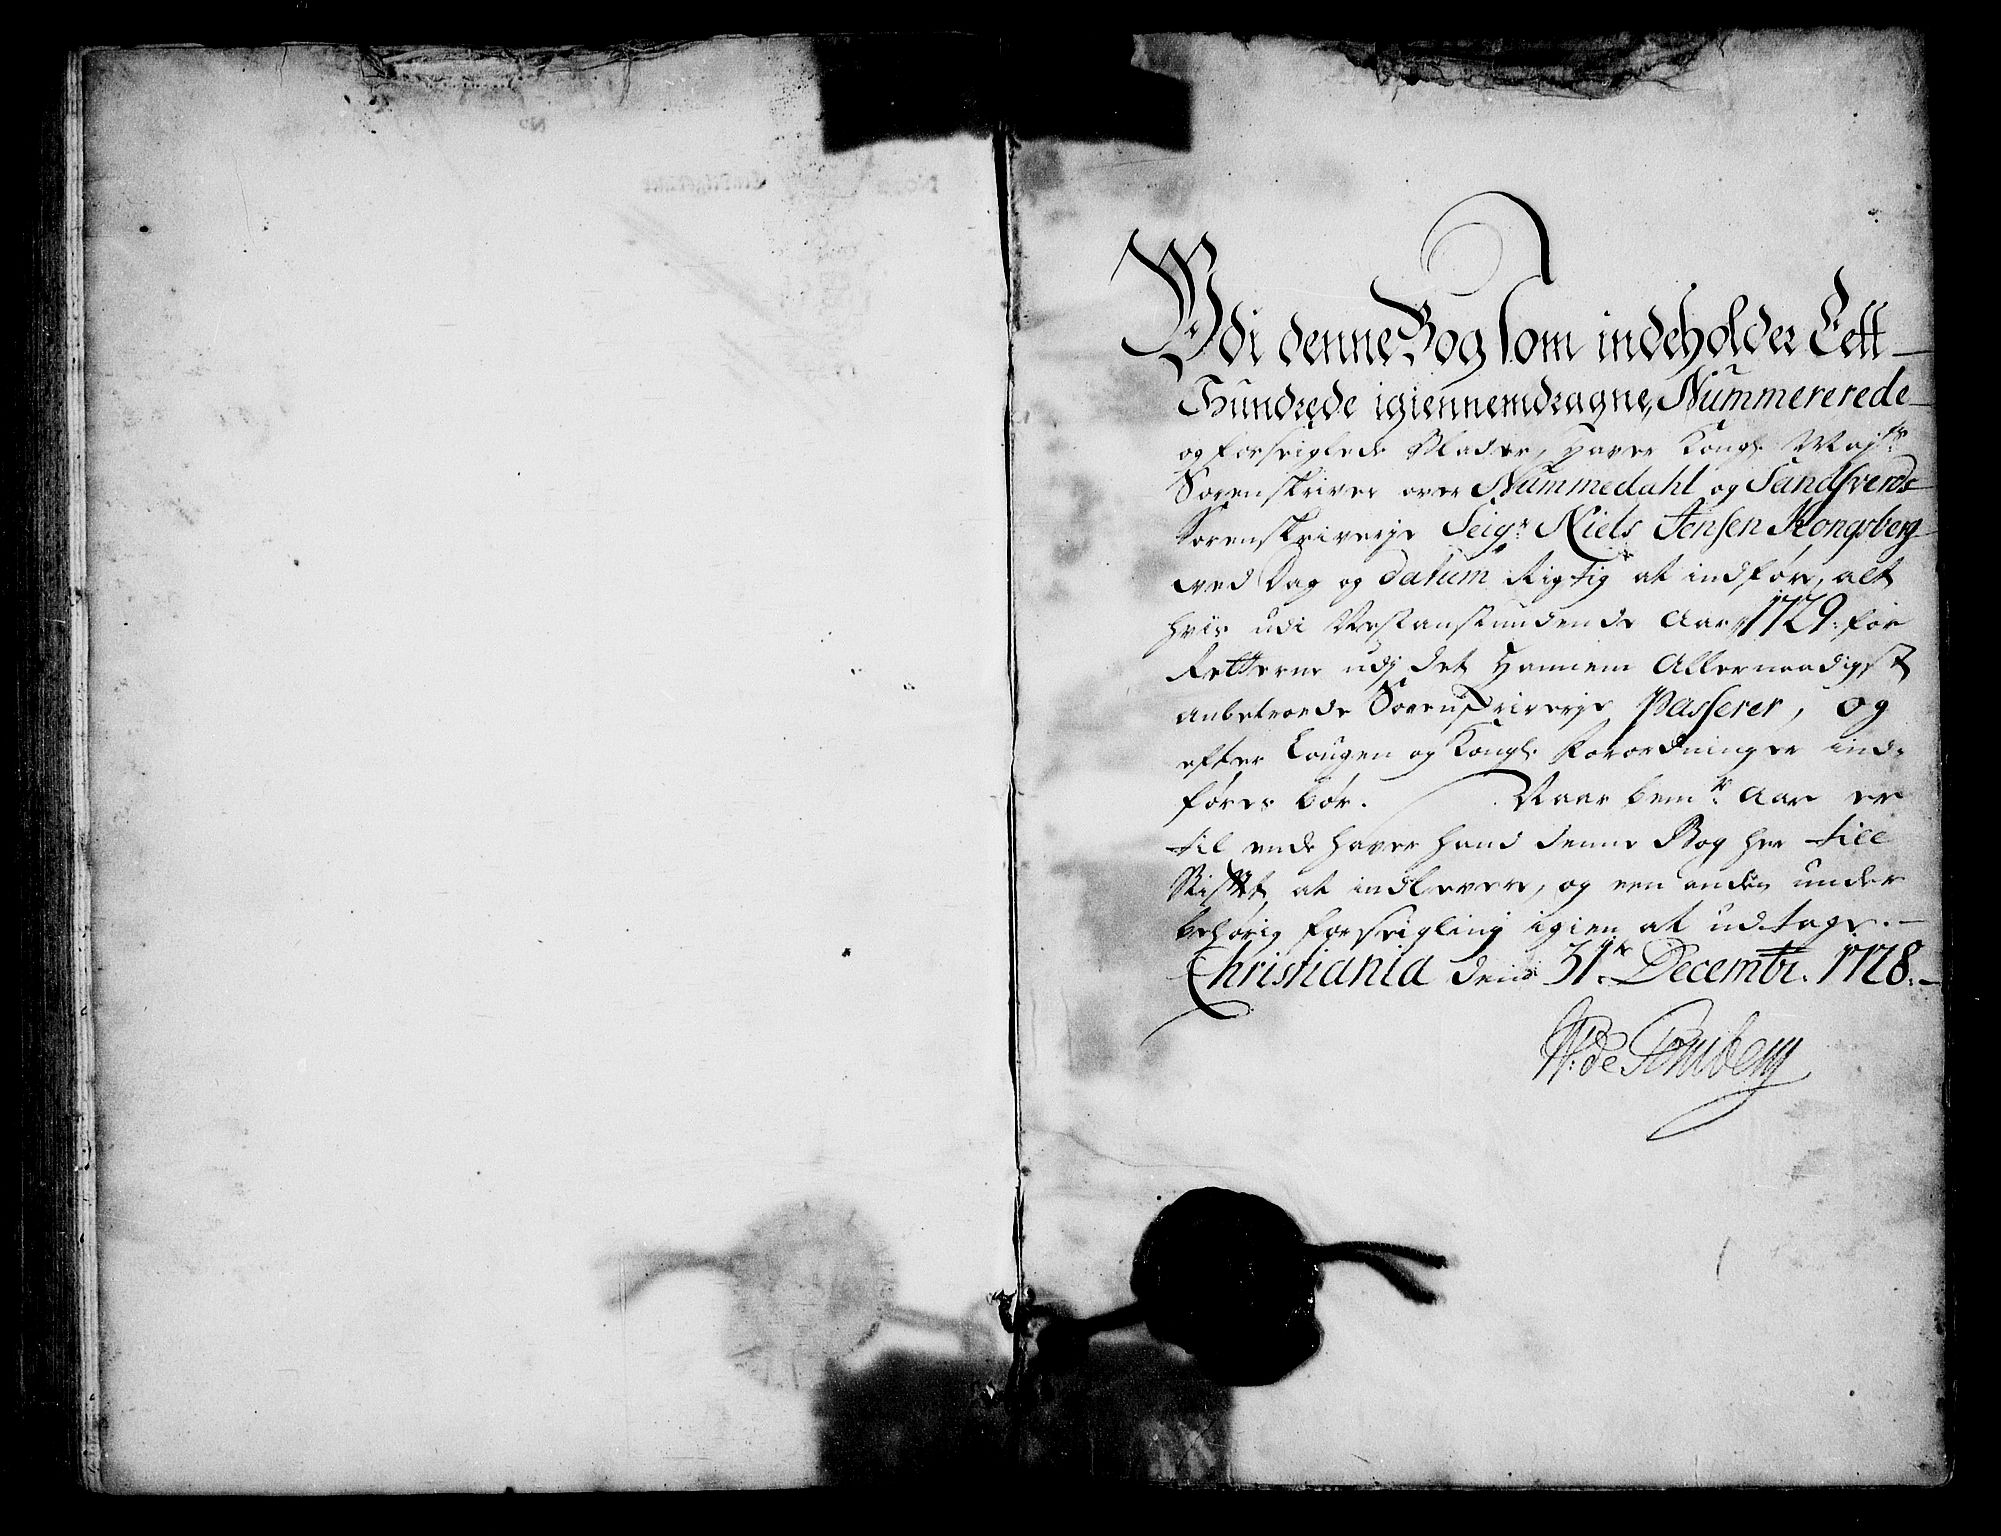 Udi denne Bog som indeholder Eett
Hundrede igiennemdragne, Nummererede
og forseiglede Blader, haver Kongl. Majts
Sorenskriver over Nummedahl og Sandsverds
Sorenskriverje Seigr. Niels Jensen Kongsberg
ved Dag og datum Rigtig at indføre, alt
hvis udi Nestanstundende Aar 1729 for
Retterne udj det hannem Allernaadigst
anbetroede Sorenskriverje Passerer, og
efter Lougen og Kongl. Forordninger ind-
føres bør. Naar bemte. Aar er
til ende haver hand denne Bog her till
Stiftet at indlevere, og een anden under
behørig forseigling igien at udtage.
Christiania den 31te Decembr. 1728.
W: de Tonsberg